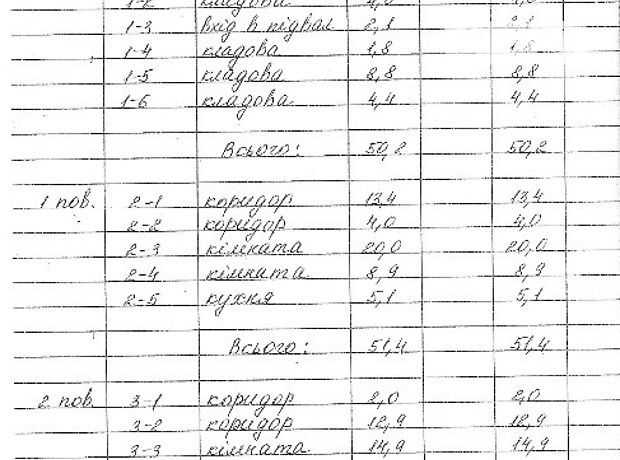 1-2 кладова
1-3 вхід в підвал 2,1 2,1
1-4 кладова 1,8 1,8
1-5 кладова 8,8 8,8
1-6 кладова 4,4 4,4
Всього: 50,2 50,2
1 пов. 2-1 коридор 13,4 13,4
2-2 коридор 4,0 4,0
2-3 кімната 20,0 20,0
2-4 кімната 8,9 8,9
2-5 кухня 5,1 5,1
Всього: 51,4 51,4
2 пов. 3-1 коридор 2,0 2,0
3-2 коридор 12,9 12,9
3-3 кімната 14,9 14,9